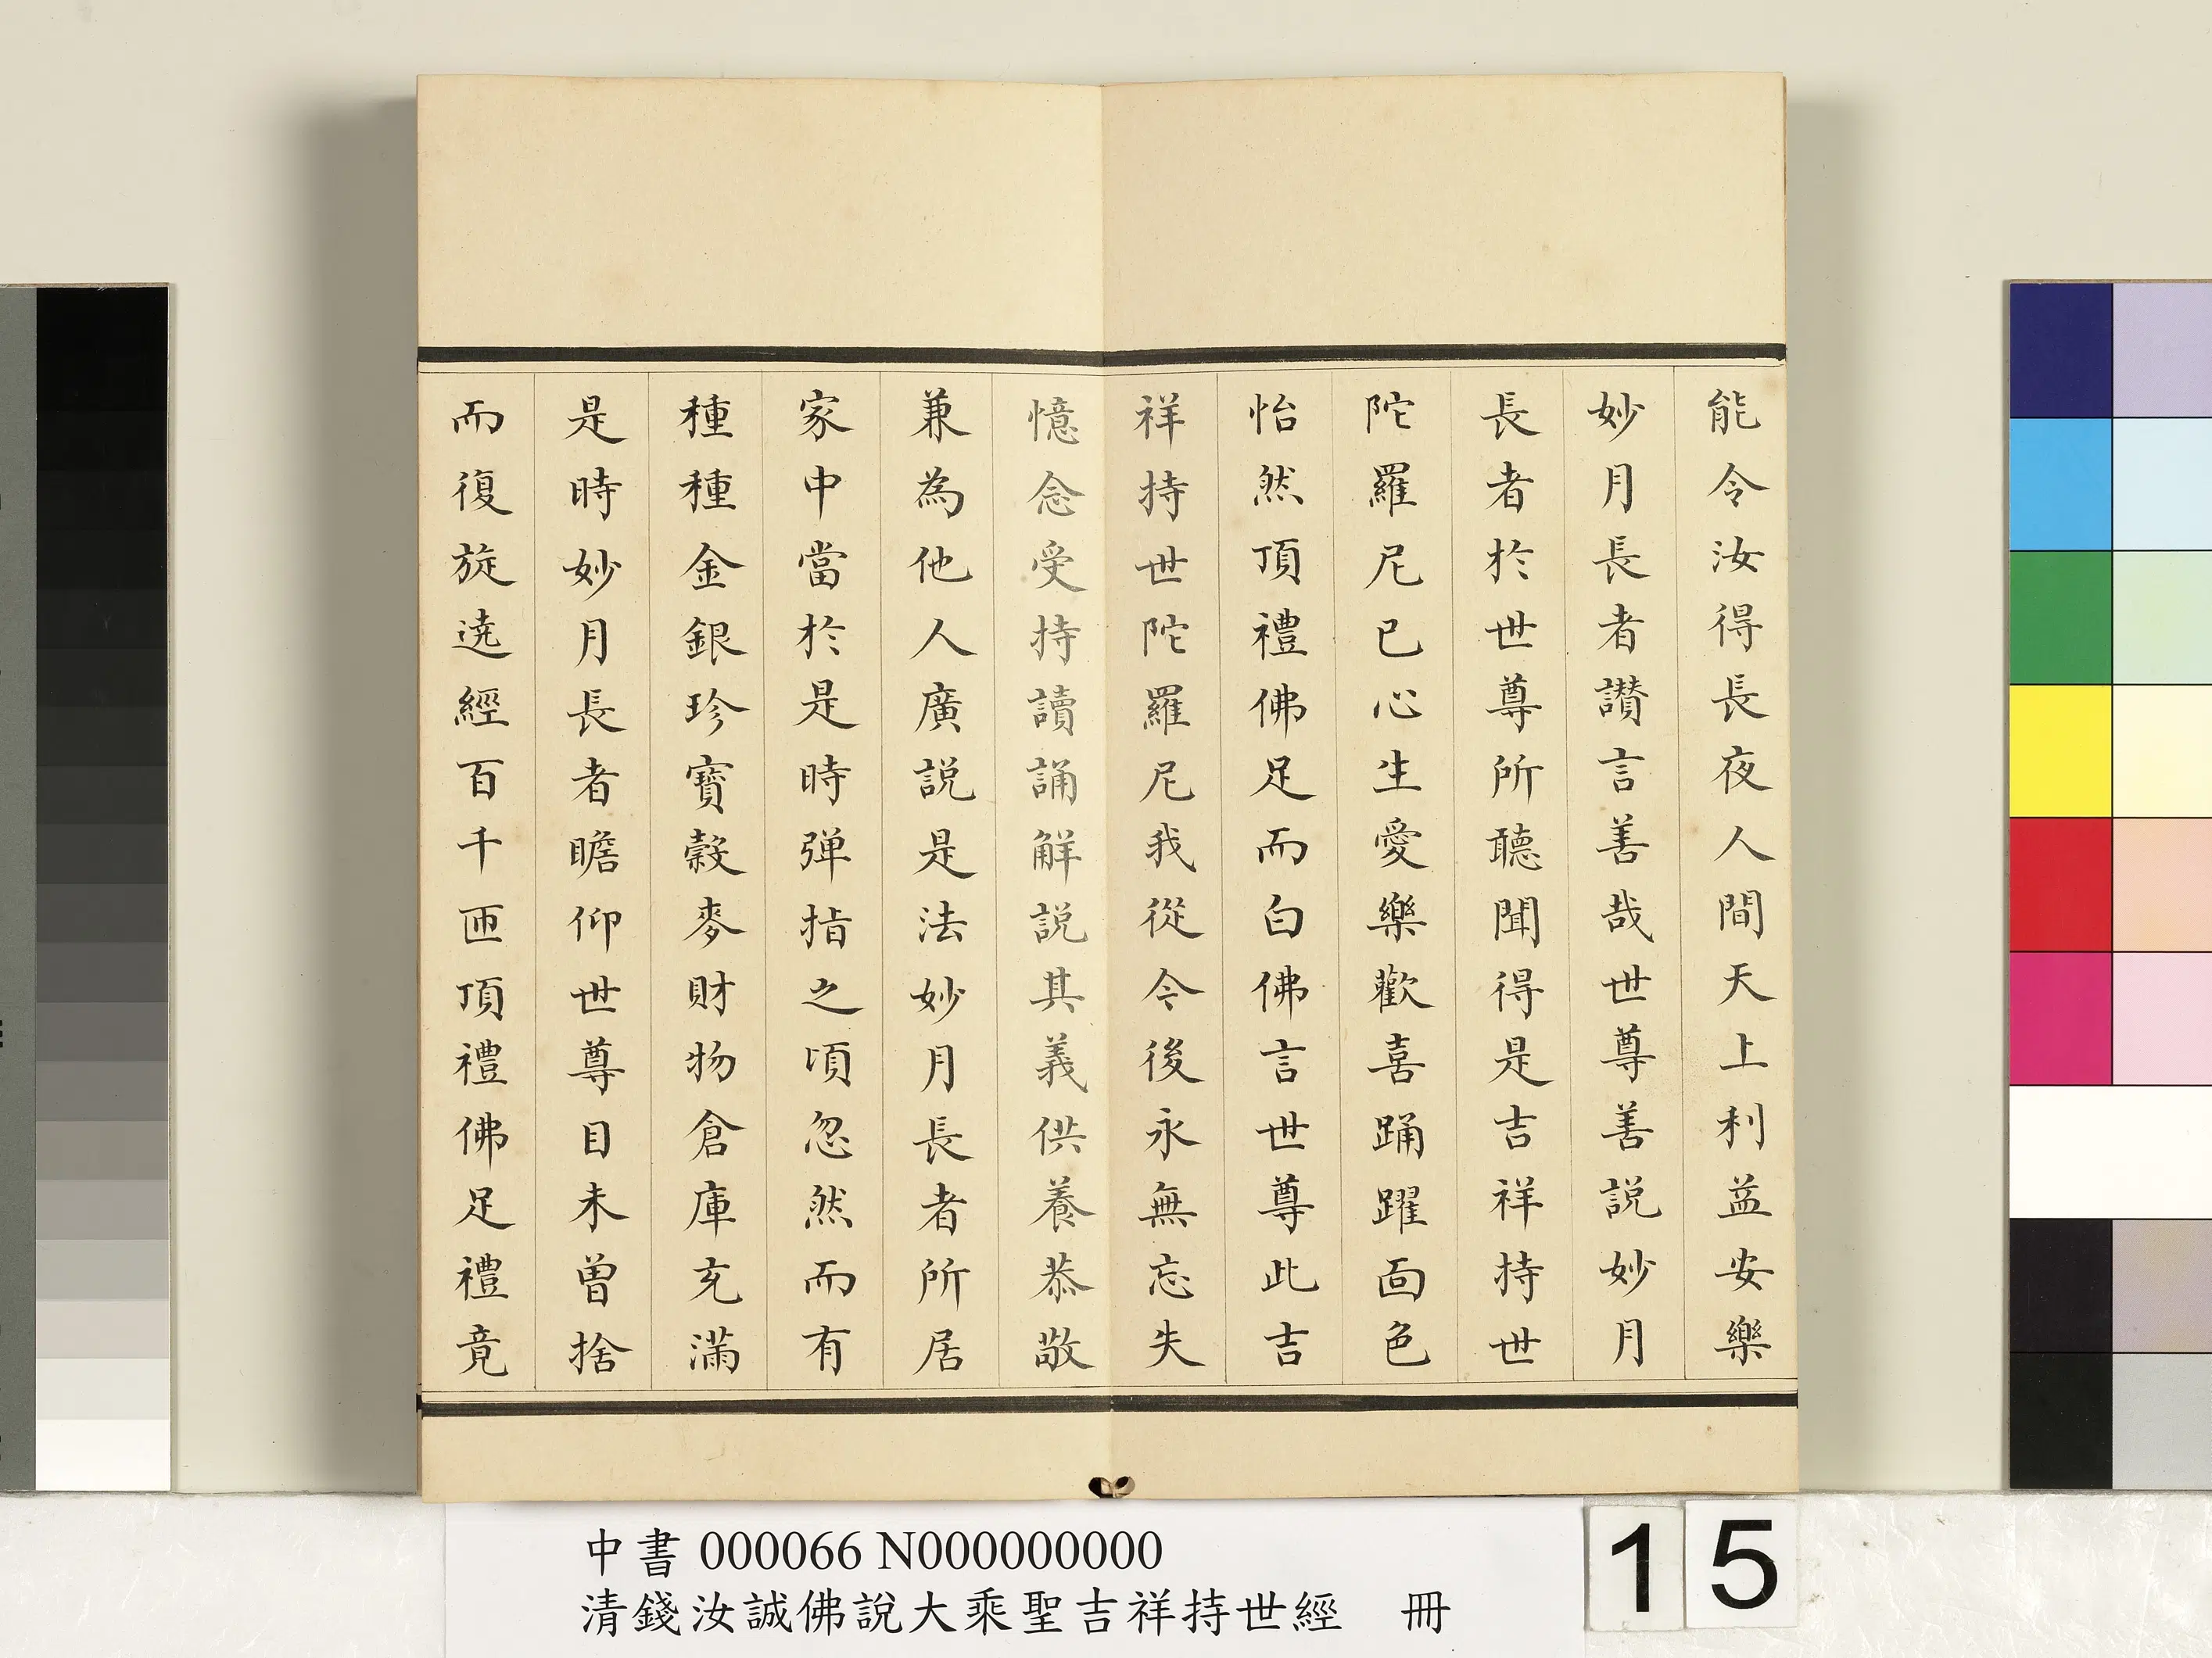 能令汝得長夜人間天上利益安樂
妙月長者讃言善哉世尊善説妙月
長者於世尊所聽聞得是吉祥持世
陀羅尼已心生愛樂歡喜踊躍面色
怡然頂禮佛足而白佛言世尊此吉
祥持世陀羅尼我從今後永無忘失
憶念受持讀誦解説其義供養恭敬
兼為他人廣説是法妙月長者所居
家中當於是時彈指之頃忽然而有
種種金銀珍寶穀麥財物倉庫充滿
是時妙月長者瞻仰世尊目未曾捨
而復旋遶經百千匝頂禮佛足禮竟
中書 000066 N000000000
清錢汝誠佛說大乘聖吉祥持世經 冊
15